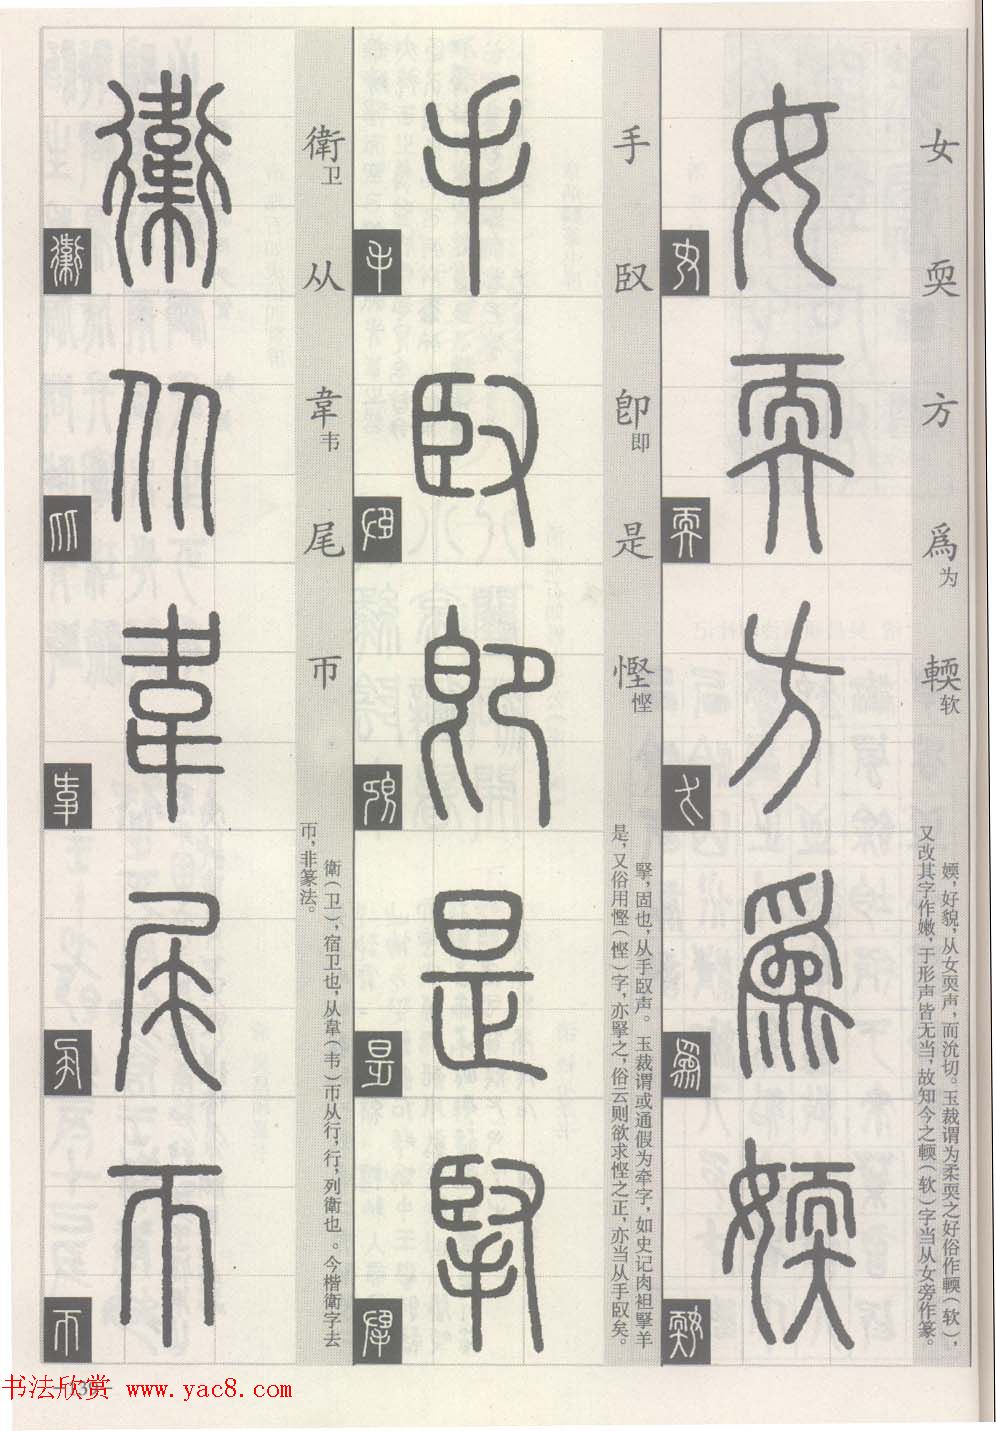 女耎方爲为輭软
媆，好貌，从女耎声，而沇切。玉裁谓为柔耎之好俗作輭（软），
又改其字作嫩，于形声皆无当，故知今之輭（软）字当从女旁作篆。
女
耎
方
爲
媆
手臤卽即是慳悭
掔，固也，从手臤声。玉裁谓或通假为牵字，如史记肉袒掔羊
是，又俗用慳（悭）字，亦掔之，俗云则欲求悭之正，亦当从手臤矣。
手
臤
卽
是
掔
衛卫从韋韦尾帀
衛（卫），宿卫也，从韋（韦）帀从行，行，列衛也。今楷衛字去
帀，非篆法。
衛
从
韋
尾
帀
书法欣赏 www.yac8.com